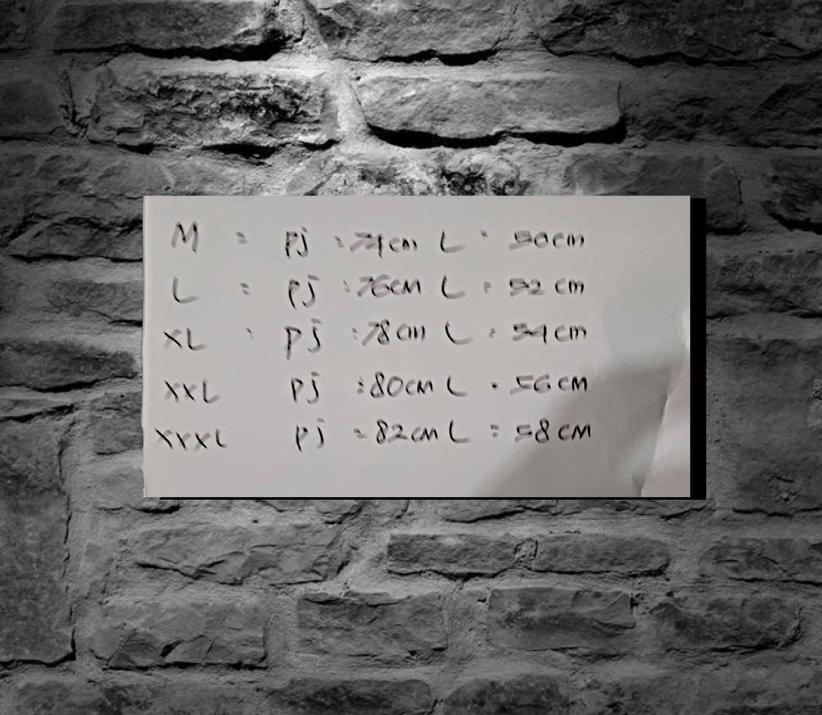 M = pj : 74cm L : 50cm
L = pj : 76cm L : 52 cm
XL : pj : 78cm L : 54cm
XXL pj : 80cm L : 56cm
XXXL pj = 82cm L = 58cm